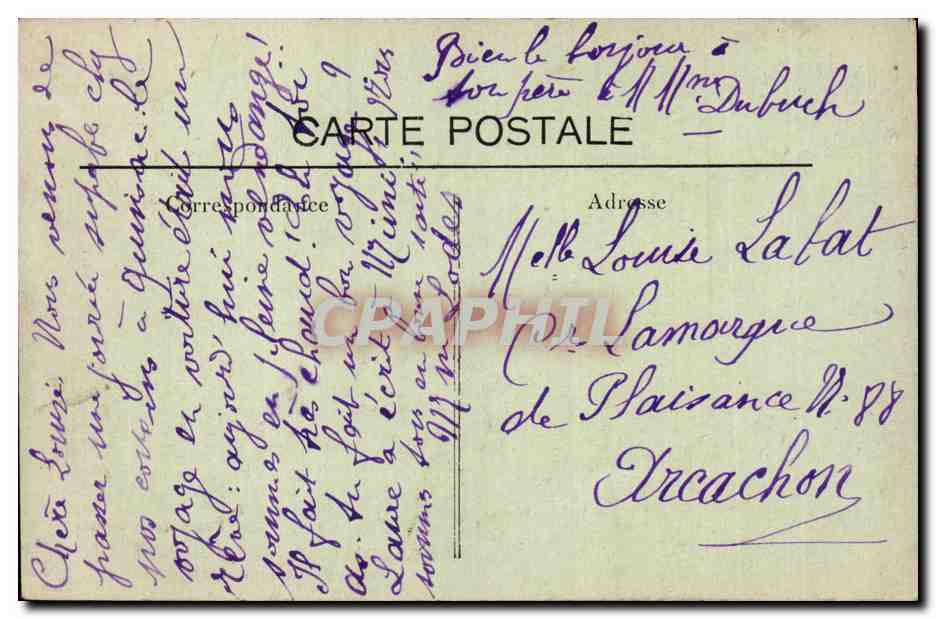 Bien le bonjour à
ton père à M Mme Dubuch
CARTE POSTALE
Correspondance
Adresse
Chère Louise Nous venons de
passer une jorné superbe chez
nos cousins à Queyrac. le
voyage en voiture était un
rêve: aujourd'hui nous
sommes en pleine vendange!
Il fait très chaud. et toi
as-tu fait un bon voyage ?
Laure a écrit Mimi, nous
somms tous en bonne santé,
Melle Louise Labat
Lamorgue
de Plaisance N. 88
Arcachon
CPAPHIL